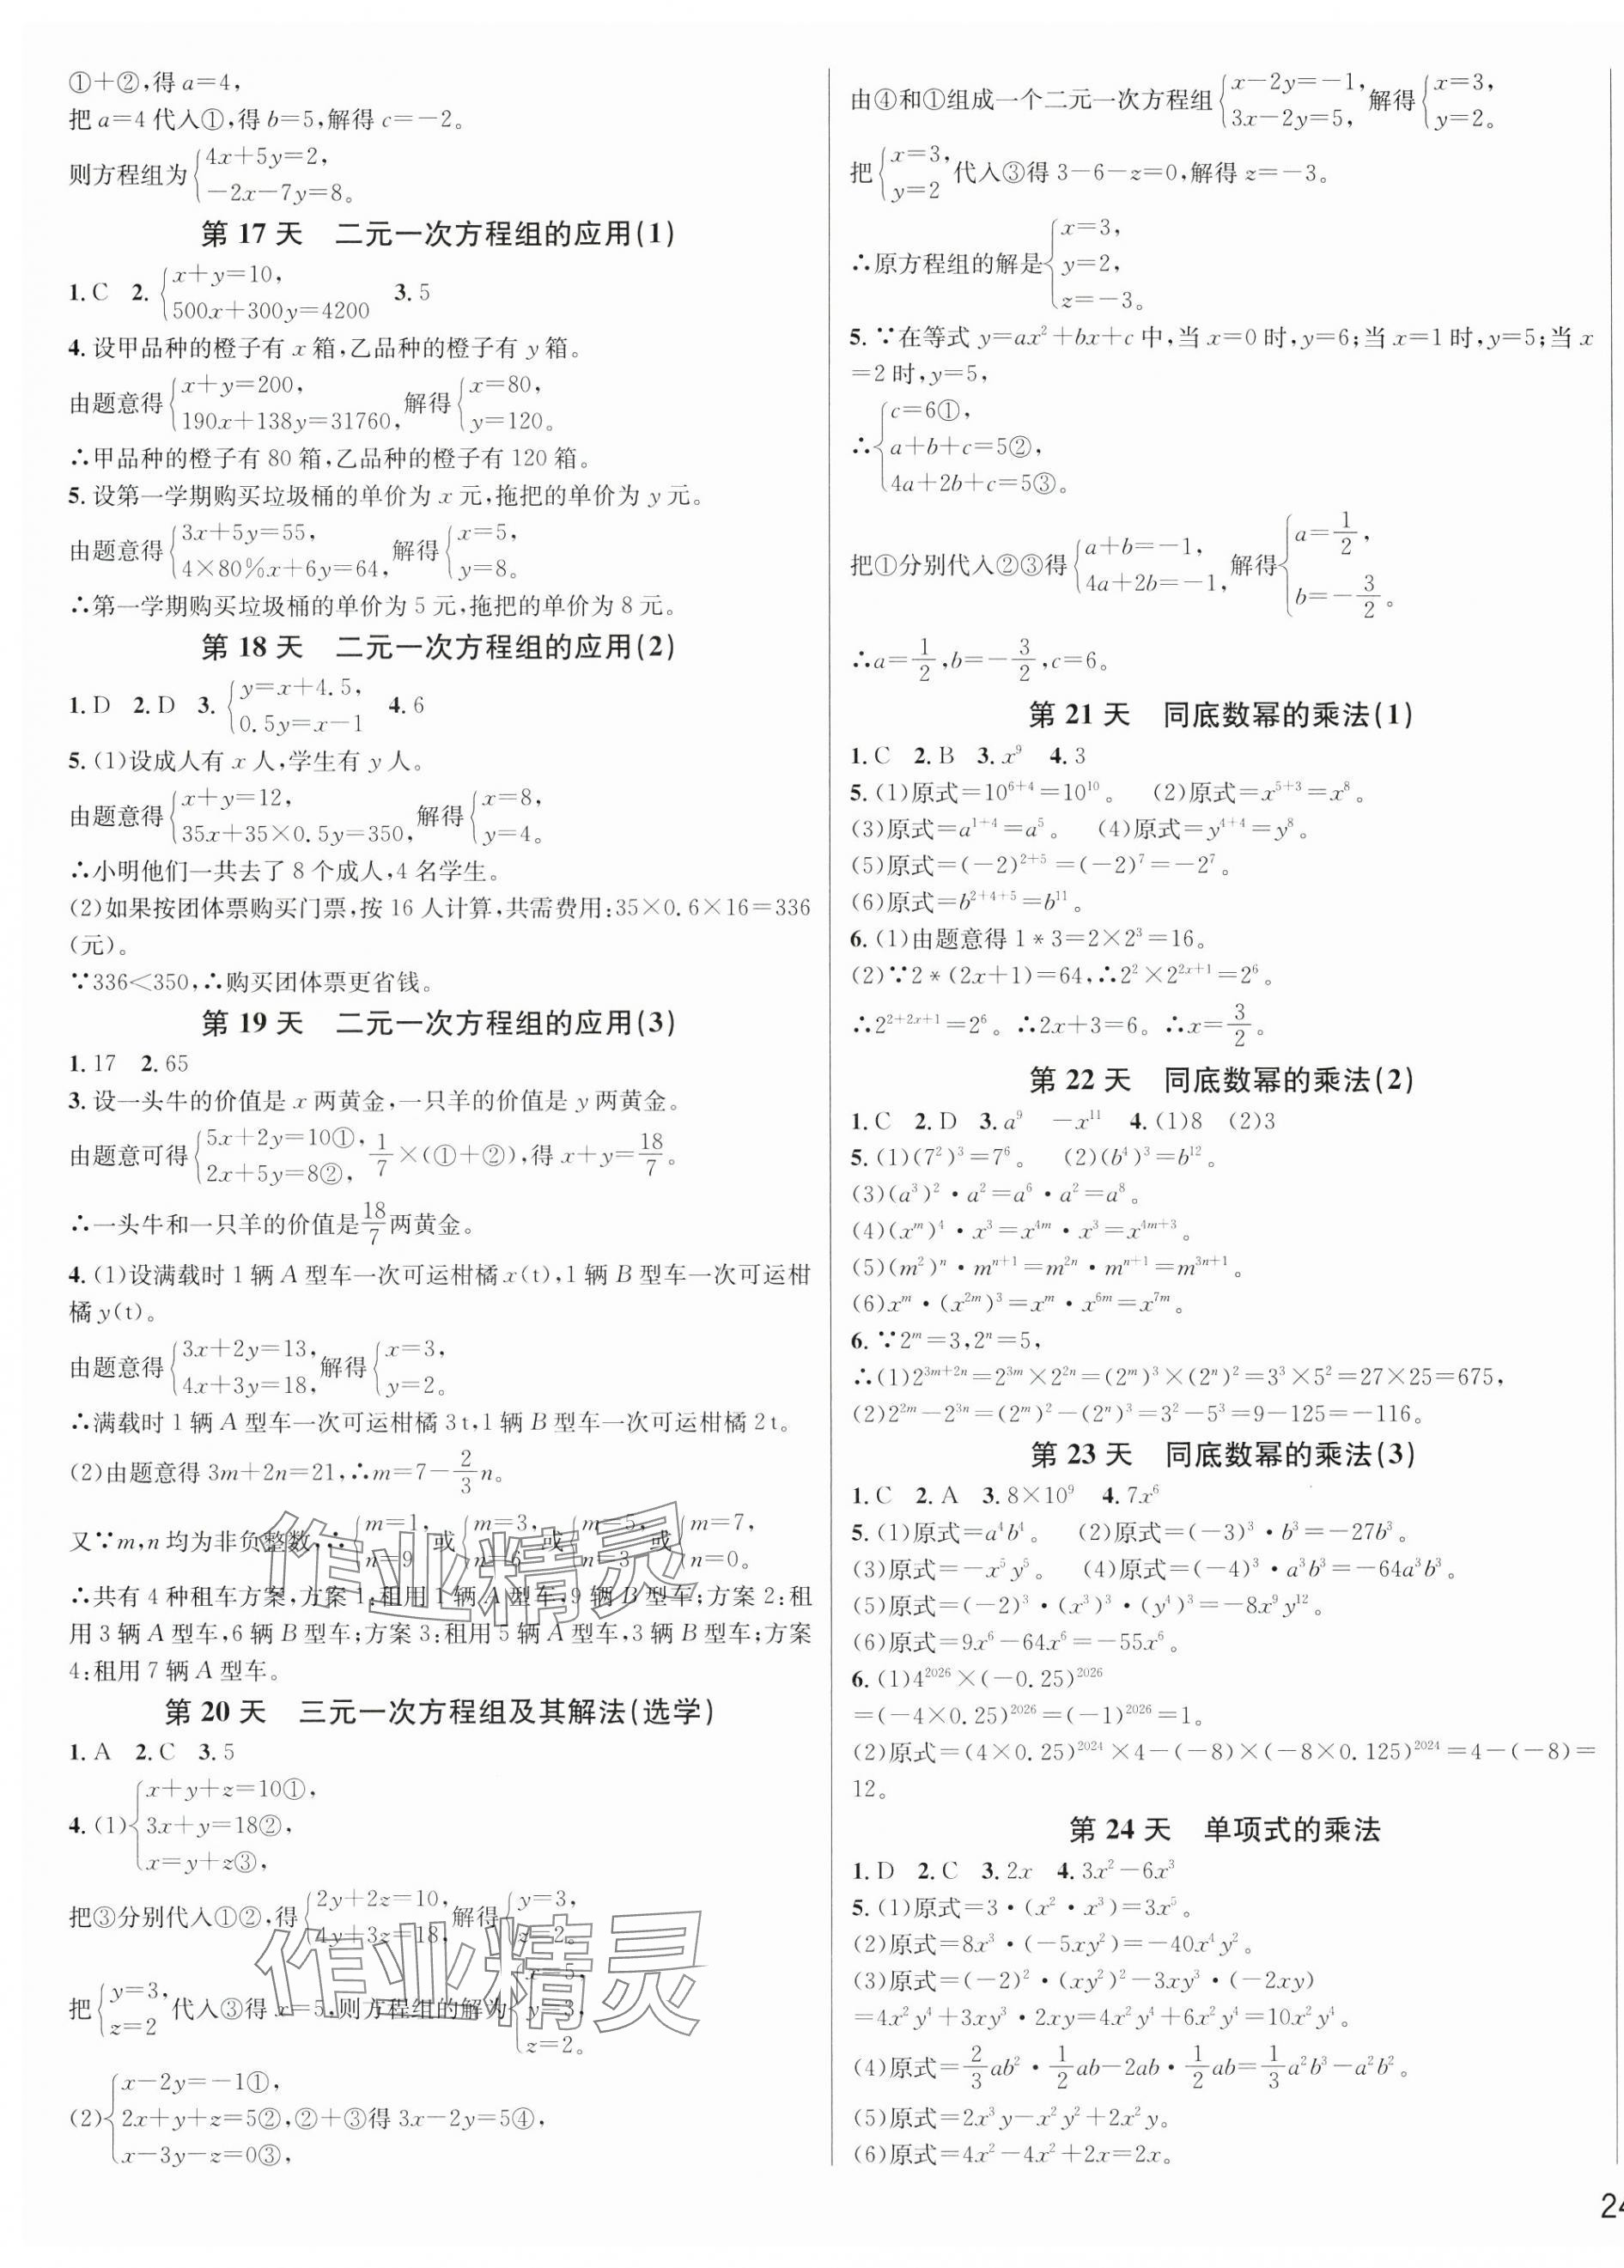 ①+②,得 a=4,
把 a=4 代入①,得 b=5,解得 c=-2。
则方程组为{4x+5y=2, -2x-7y=8。
第 17 天　二元一次方程组的应用(1)
1. C　2. {x+y=10, 500x+300y=4200　3. 5
4. 设甲品种的橙子有 x 箱,乙品种的橙子有 y 箱。
由题意得{x+y=200, 190x+138y=31760, 解得{x=80, y=120。
∴甲品种的橙子有 80 箱,乙品种的橙子有 120 箱。
5. 设第一学期购买垃圾桶的单价为 x 元,拖把的单价为 y 元。
由题意得{3x+5y=55, 4×80%x+6y=64, 解得{x=5, y=8。
∴第一学期购买垃圾桶的单价为 5 元,拖把的单价为 8 元。
第 18 天　二元一次方程组的应用(2)
1. D　2. D　3. {y=x+4.5, 0.5y=x-1　4. 6
5. (1)设成人有 x 人,学生有 y 人。
由题意得{x+y=12, 35x+35×0.5y=350, 解得{x=8, y=4。
∴小明他们一共去了 8 个成人,4 名学生。
(2)如果按团体票购买门票,按 16 人计算,共需费用:35×0.6×16=336
(元)。
∵336<350,∴购买团体票更省钱。
第 19 天　二元一次方程组的应用(3)
1. 17　2. 65
3. 设一头牛的价值是 x 两黄金,一只羊的价值是 y 两黄金。
由题意可得{5x+2y=10①, 2x+5y=8②, 1/7×(①+②),得 x+y=18/7。
∴一头牛和一只羊的价值是18/7两黄金。
4. (1)设满载时 1 辆 A 型车一次可运柑橘 x(t),1 辆 B 型车一次可运柑
橘 y(t)。
由题意得{3x+2y=13, 4x+3y=18, 解得{x=3, y=2。
∴满载时 1 辆 A 型车一次可运柑橘 3 t,1 辆 B 型车一次可运柑橘 2 t。
(2)由题意得 3m+2n=21,∴m=7-2/3n。
又∵m,n 均为非负整数,∴{m=1, n=9 或{m=3, n=6 或{m=5, n=3 或{m=7, n=0。
∴共有 4 种租车方案,方案 1:租用 1 辆 A 型车,9 辆 B 型车;方案 2:租
用 3 辆 A 型车,6 辆 B 型车;方案 3:租用 5 辆 A 型车,3 辆 B 型车;方案
4:租用 7 辆 A 型车。
第 20 天　三元一次方程组及其解法(选学)
1. A　2. C　3. 5
4. (1){x+y+z=10①, 3x+y=18②, x=y+z③,
把③分别代入①②,得{2y+2z=10, 4y+3z=18, 解得{y=3, z=2。
把{y=3, z=2 代入③得 x=5,则方程组的解为{x=5, y=3, z=2。
(2){x-2y=-1①, 2x+y+z=5②, x-3y-z=0③, ②+③得 3x-2y=5④,
由④和①组成一个二元一次方程组{x-2y=-1, 3x-2y=5, 解得{x=3, y=2。
把{x=3, y=2 代入③得 3-6-z=0,解得 z=-3。
∴原方程组的解是{x=3, y=2, z=-3。
5. ∵在等式 y=ax²+bx+c 中,当 x=0 时,y=6;当 x=1 时,y=5;当 x
=2 时,y=5,
∴{c=6①, a+b+c=5②, 4a+2b+c=5③。
把①分别代入②③得{a+b=-1, 4a+2b=-1, 解得{a=1/2, b=-3/2。
∴a=1/2,b=-3/2,c=6。
第 21 天　同底数幂的乘法(1)
1. C　2. B　3. x⁹　4. 3
5. (1)原式=10⁶⁺⁴=10¹⁰。　(2)原式=x⁵⁺³=x⁸。
(3)原式=a¹⁺⁴=a⁵。　(4)原式=y⁴⁺⁴=y⁸。
(5)原式=(-2)²⁺⁵=(-2)⁷=-2⁷。
(6)原式=b²⁺⁴⁺⁵=b¹¹。
6. (1)由题意得 1*3=2×2³=16。
(2)∵2*(2x+1)=64,∴2²×2^(2x+1)=2⁶。
∴2^(2+2x+1)=2⁶。∴2x+3=6。∴x=3/2。
第 22 天　同底数幂的乘法(2)
1. C　2. D　3. a⁹　-x¹¹　4. (1)8　(2)3
5. (1)(7²)³=7⁶。　(2)(b⁴)³=b¹²。
(3)(a³)²·a²=a⁶·a²=a⁸。
(4)(x^m)⁴·x³=x^(4m)·x³=x^(4m+3)。
(5)(m²)^n·m^(n+1)=m^(2n)·m^(n+1)=m^(3n+1)。
(6)x^m·(x^(2m))³=x^m·x^(6m)=x^(7m)。
6. ∵2^m=3,2^n=5,
∴(1)2^(3m+2n)=2^(3m)×2^(2n)=(2^m)³×(2^n)²=3³×5²=27×25=675,
(2)2^(2m)-2^(3n)=(2^m)²-(2^n)³=3²-5³=9-125=-116。
第 23 天　同底数幂的乘法(3)
1. C　2. A　3. 8×10⁹　4. 7x⁶
5. (1)原式=a⁴b⁴。　(2)原式=(-3)³·b³=-27b³。
(3)原式=-x⁵y⁵。　(4)原式=(-4)³·a³b³=-64a³b³。
(5)原式=(-2)³·(x³)³·(y⁴)³=-8x⁹y¹²。
(6)原式=9x⁶-64x⁶=-55x⁶。
6. (1)4²⁰²⁶×(-0.25)²⁰²⁶
=(-4×0.25)²⁰²⁶=(-1)²⁰²⁶=1。
(2)原式=(4×0.25)²⁰²⁴×4-(-8)×(-8×0.125)²⁰²⁴=4-(-8)=
12。
第 24 天　单项式的乘法
1. D　2. C　3. 2x　4. 3x²-6x³
5. (1)原式=3·(x²·x³)=3x⁵。
(2)原式=8x³·(-5xy²)=-40x⁴y²。
(3)原式=(-2)²·(xy²)²-3xy³·(-2xy)
=4x²y⁴+3xy³·2xy=4x²y⁴+6x²y⁴=10x²y⁴。
(4)原式=2/3ab²·1/2ab-2ab·1/2ab=1/3a²b³-a²b²。
(5)原式=2x³y-x²y²+2x²y。
(6)原式=4x²-4x²+2x=2x。
作业精灵
作业精灵
24